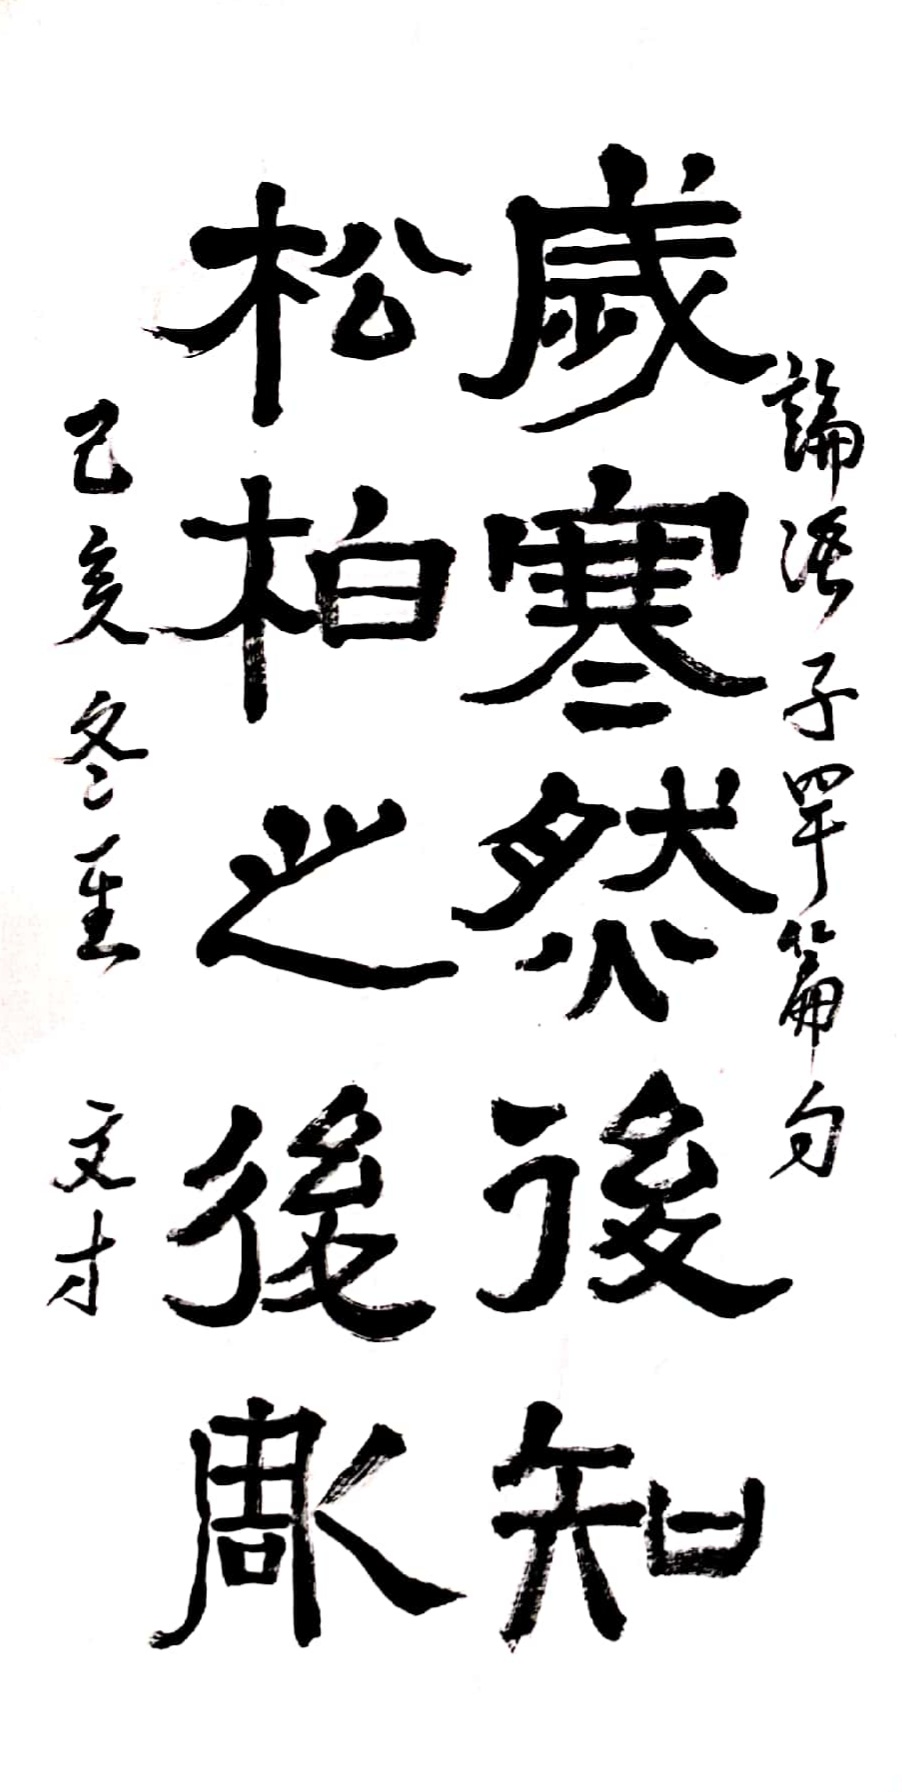 論語子罕篇句
歲寒然後知
松柏之後彫
己亥冬至 文才